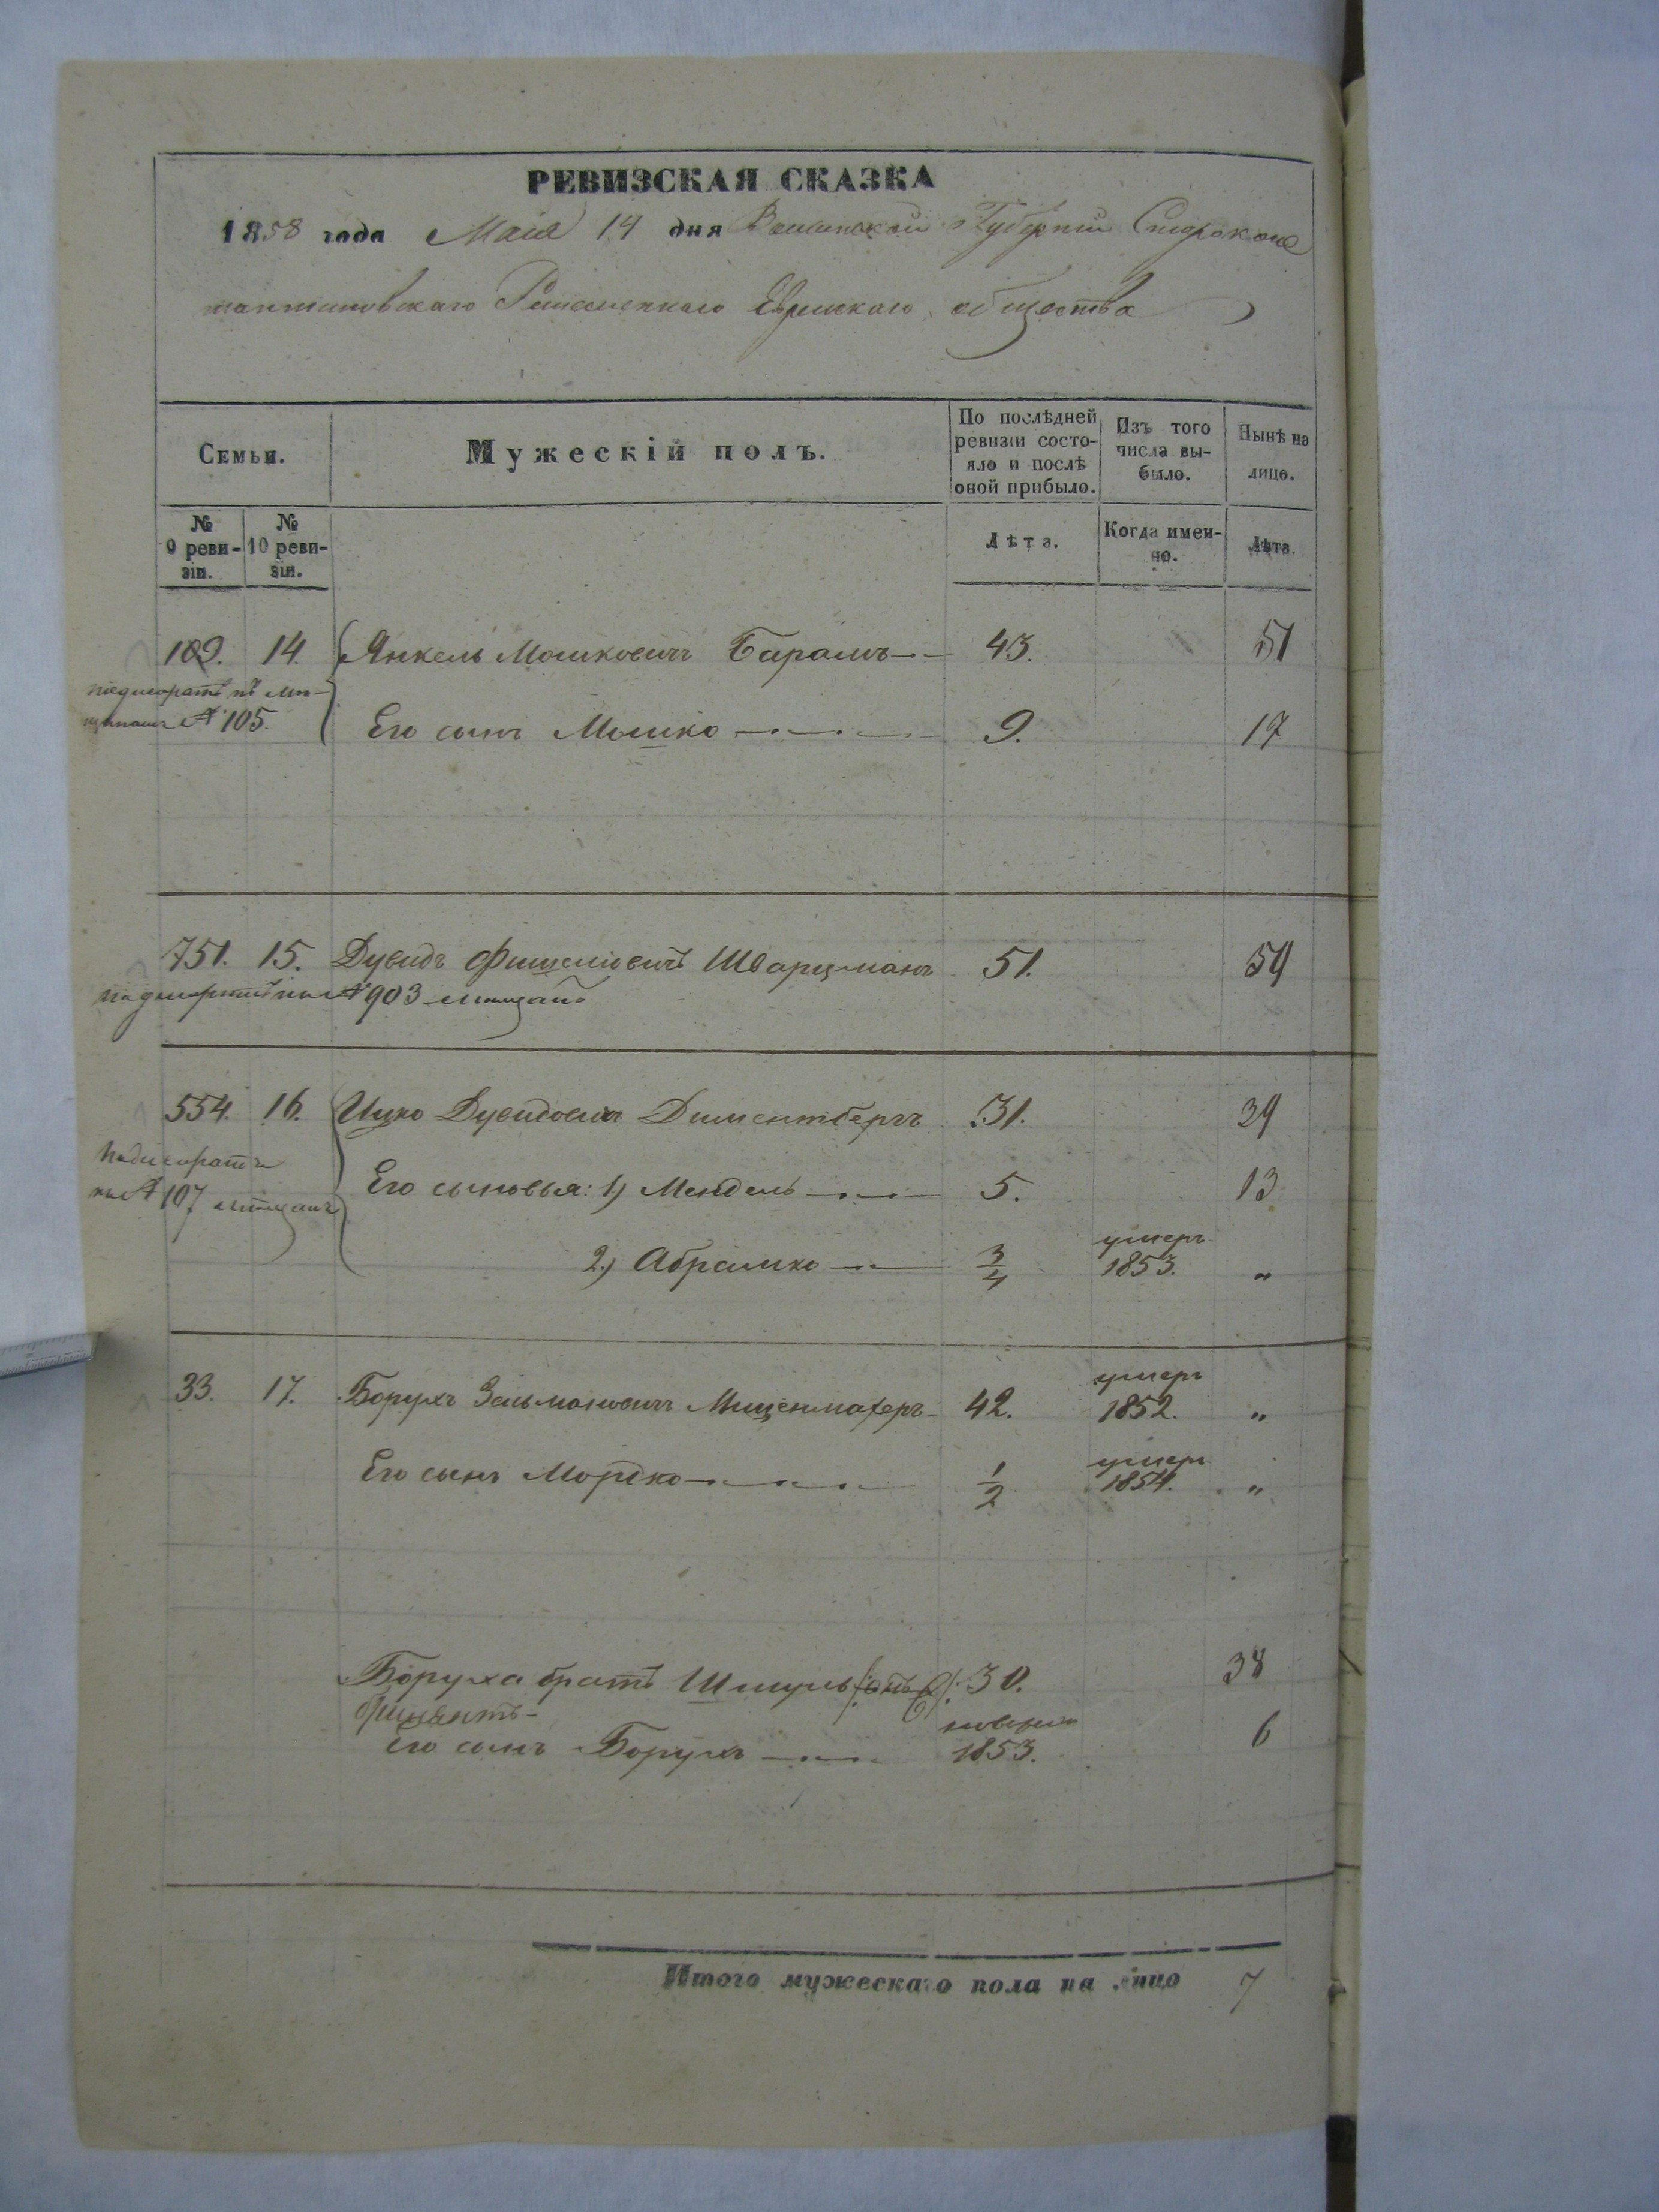 РЕВИЗСКАЯ СКАЗКА
1858 года Маія 14 дня Волынской Губерніи Староконс
тантиновскаго Ремесленнаго Еврейскаго общества
Семьи.
Мужескій полъ.
По послѣдней ревизіи состояло и послѣ оной прибыло.
Изъ того числа выбыло.
Нынѣ на лицо.
№ 9 ревизіи.
№ 10 ревизіи.
Лѣта.
Когда именно.
Лѣта.
109. 14. Янкель Мошковичъ Барамъ 43. 51
№ 105.
Его сынъ Мошко 9. 17
751. 15. Дувидъ Фишелiовичъ Шварцманъ 51. 59
№ 903 мещанъ
554. 16. Ицко Дувидовичъ Диментбергъ 31. 39
№ 107 мещанъ
Его сыновья: 1) Мендель 5. 13
2) Абрамко 3/4 умеръ 1853. "
33. 17. Борухъ Зельмановичъ Миценмахеръ 42. умеръ 1852. "
Его сынъ Мордко 1/2 умеръ 1854. "
Боруха братъ Шмуль 30. 38
Его сынъ Борухъ 1853. 6
Итого мужескаго пола на лицо 7